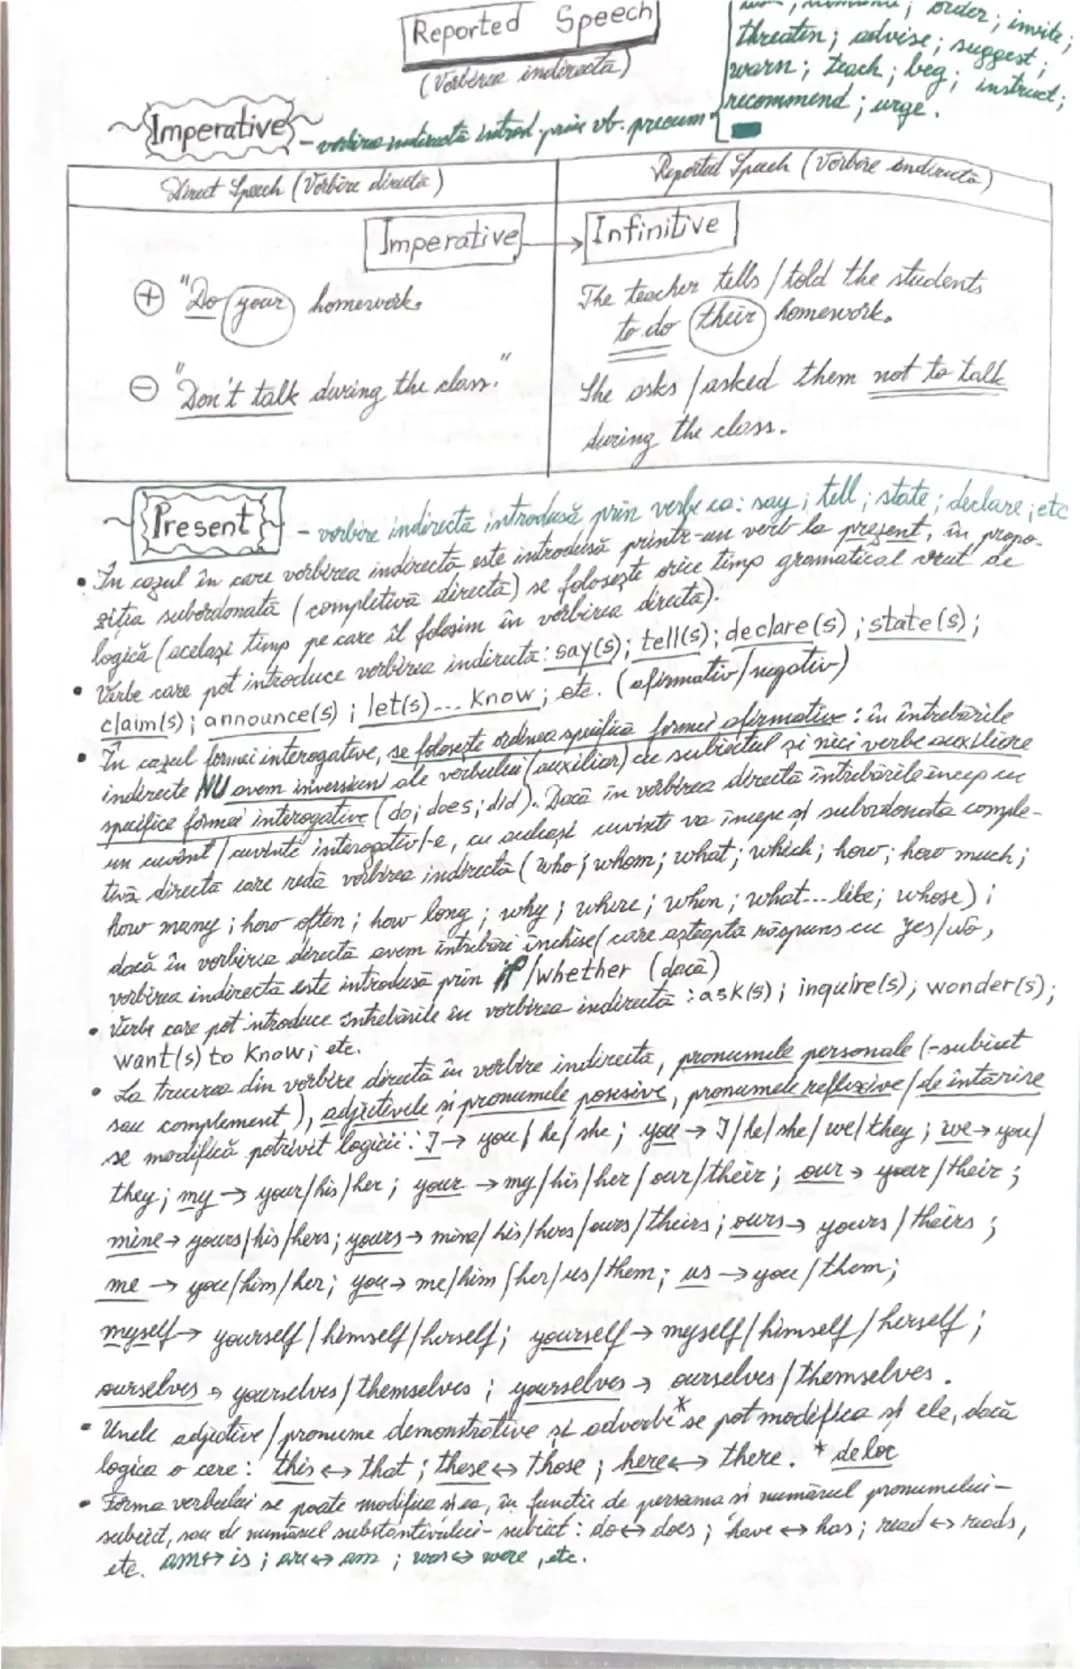 Reported Speech
(Vorbirea indirectă)
order; invite;
threaten; advise; suggest;
warn; teach; beg; instruct;
recommend; urge.
Imperative - vorbirea indirectă introd. prin vb. precum
Direct Speech (Vorbire directă)
Reported Speech (Vorbire indirectă)
Imperative → Infinitive
+ "Do your homework.
The teacher tells / told the students
to do their homework.
- "Don't talk during the class."
She asks / asked them not to talk
during the class.
Present - vorbire indirectă introdusă prin verbe ca: say; tell; state; declare; etc
• În cazul în care vorbirea indirectă este introdusă printr-un verb la prezent, în propo-
ziția subordonată (completivă directă) se folosește orice timp gramatical vrut de
logică (același timp pe care îl folosim în vorbirea directă).
• Verbe care pot introduce vorbirea indirectă: say(s); tell(s); declare(s); state(s);
claim(s); announce(s); let(s)... know; etc. (afirmativ/negativ)
• În cazul formei interogative, se folosește ordinea specifică formei afirmative: în întrebările
indirecte NU avem inversiuni ale verbului (auxiliar) cu subiectul și nici verbe auxiliare
specifice formei interogative (do; does; did). Dacă în vorbirea directă întrebările încep cu
un cuvânt / cuvinte interogativ/-e, cu aceleași cuvinte va începe și subordonata comple-
tivă directă care redă vorbirea indirectă (who; whom; what; which; how; how much;
how many; how often; how long; why; where; when; what...like; whose);
dacă în vorbirea directă avem întrebări închise (care așteaptă răspuns cu Yes/No,
vorbirea indirectă este introdusă prin if/whether (dacă)
• Verbe care pot introduce întrebările în vorbirea indirectă: ask(s); inquire(s); wonder(s);
want(s) to know; etc.
• La trecerea din vorbire directă în vorbire indirectă, pronumele personale (-subiect
sau complement), adjectivele și pronumele posesive, pronumele reflexive / de întărire
se modifică potrivit logicii: I → you / he / she; you → I / he / she / we / they; we → you /
they; my → your / his / her; your → my / his / her / our / their; our → your / their;
mine → yours / his / hers; yours → mine / his / hers / ours / theirs; ours → yours / theirs;
me → you / him / her; you → me / him / her / us / them; us → you / them;
myself → yourself / himself / herself; yourself → myself / himself / herself;
ourselves → yourselves / themselves; yourselves → ourselves / themselves.
• Unele adjective / pronume demonstrative și adverbe* se pot modifica și ele, dacă
logica o cere: this ↔ that; these ↔ those; here ↔ there. * de loc
• Forma verbului se poate modifica și ea, în funcție de persoana și numărul pronumelui-
subiect, sau de numărul substantivului-subiect: do ↔ does; have ↔ has; read ↔ reads,
etc. am ↔ is; are ↔ am; was ↔ were, etc.